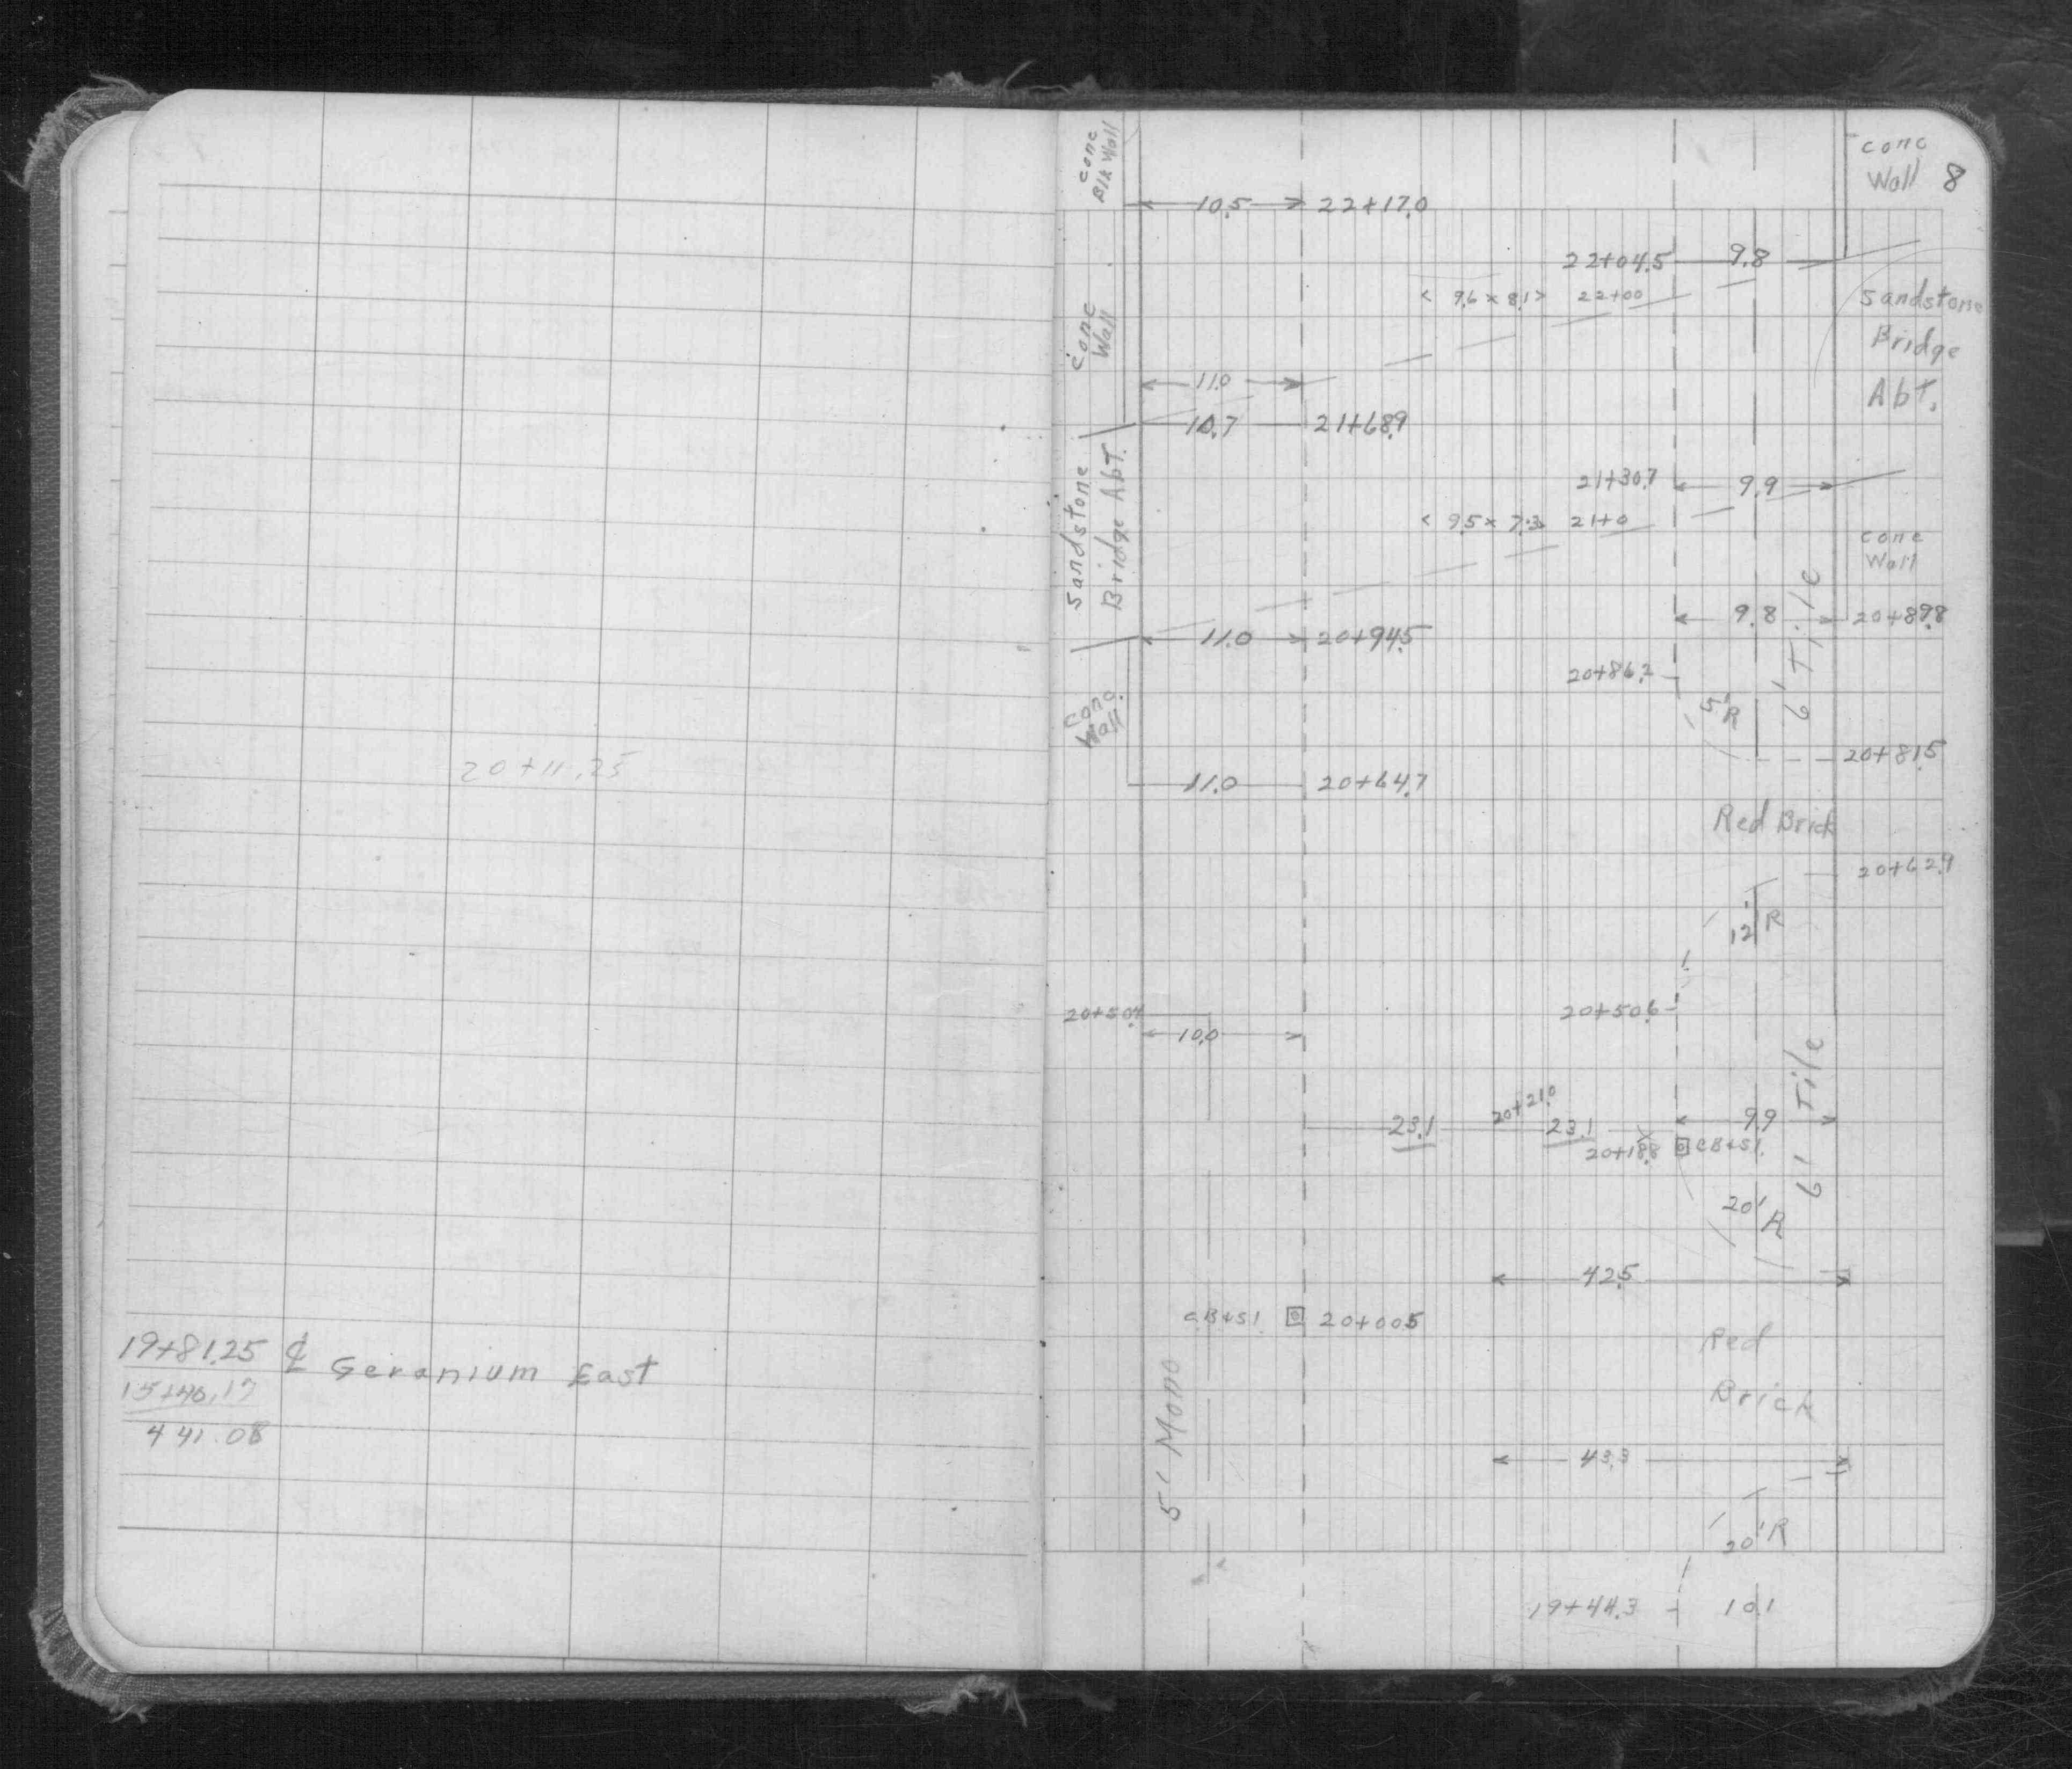 20+11.25
19+81.25 ℄ Geranium East
15+40.17
441.08
8
conc
Blk Wall
conc
Wall
10.5 22+17.0
22+04.5 9.8
< 9.6 x 8.1 > 22+00
Sandstone
Bridge
Abt.
conc
Wall
11.0
10.7 21+68.9
21+30.7 9.9
< 9.5 x 7.3 > 21+0
Sandstone
Bridge Abt.
conc
Wall
9.8 20+89.8
11.0 20+94.5
20+86.2
5'R
6' Tile
conc.
Wall
20+81.5
11.0 20+64.7
Red Brick
20+62.9
12'R
20+50.6
10.0
6' Tile
20+21.0
23.1 23.1 9.9
20+18.8 CB+SI.
20'R
42.5
CB+SI. 20+00.5
Red
Brick
5' Mono
43.3
20'R
19+44.3 10.1